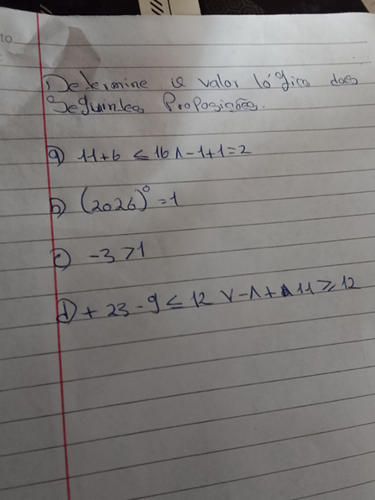 Determine o valor lógico das
Seguintes Proposições.
a) 11+6 ≤ 16 ∧ -1+1=2
b) (2026)⁰ = 1
c) -3 > 1
d) + 23 - 9 ≤ 12 ∨ -1 + 11 ≥ 12